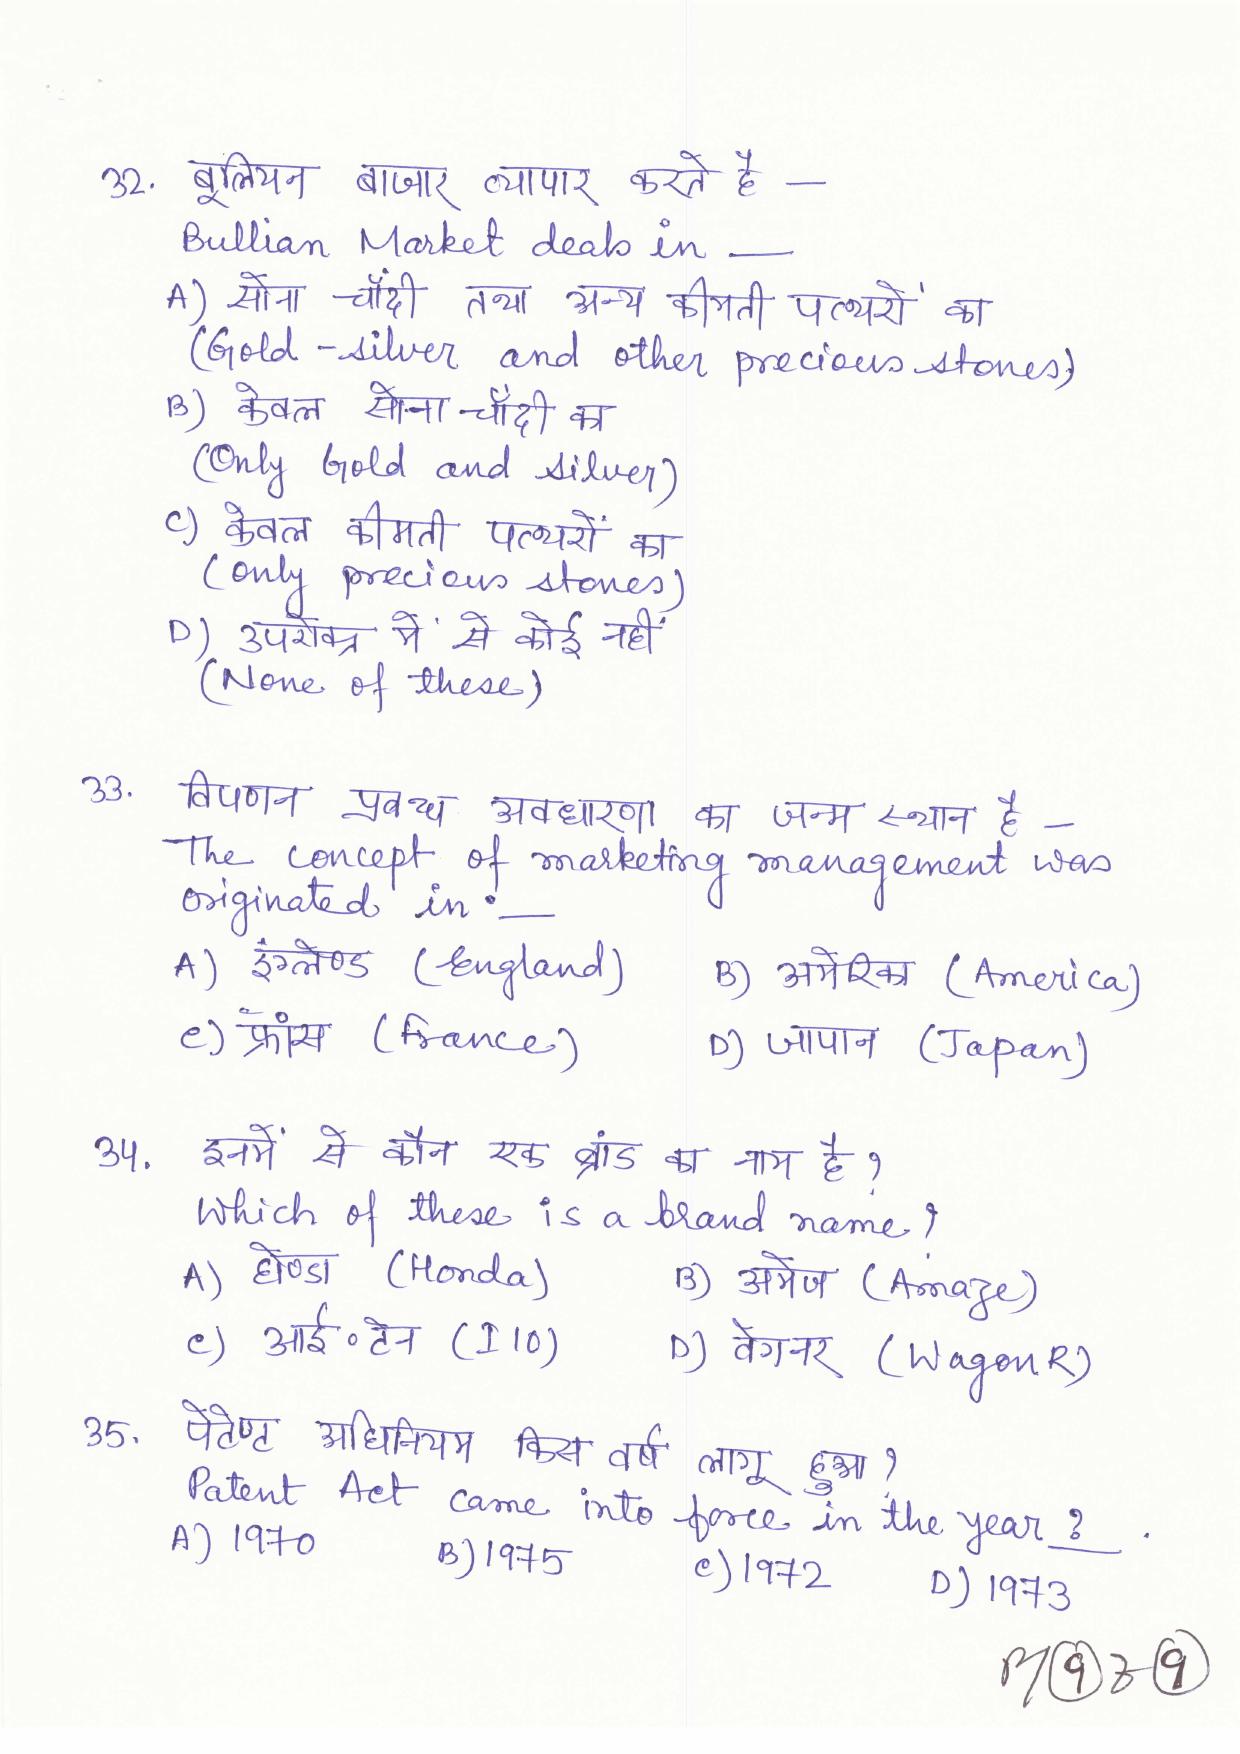 32. बूलियन बाजार व्यापार करते है —
Bullian Market deals in —
A) सोना चाँदी तथा अन्य कीमती पत्थरों का
(Gold - silver and other precious stones)
B) केवल सोना-चाँदी का
(Only Gold and silver)
C) केवल कीमती पत्थरों का
(only precious stones)
D) उपरोक्त में से कोई नहीं
(None of these)
33. विपणन प्रबन्ध अवधारणा का जन्म स्थान है —
The concept of marketing management was
originated in : —
A) इंग्लेण्ड (England) B) अमेरिका (America)
C) फ्रांस (France) D) जापान (Japan)
34. इनमें से कौन एक ब्रांड का नाम है ?
Which of these is a brand name ?
A) होण्डा (Honda) B) अमेज (Amaze)
C) आई॰टेन (I 10) D) वेगनर (WagonR)
35. पेटेण्ट अधिनियम किस वर्ष लागू हुआ ?
Patent Act came into force in the year ? __ .
A) 1970 B) 1975 C) 1972 D) 1973
9 9